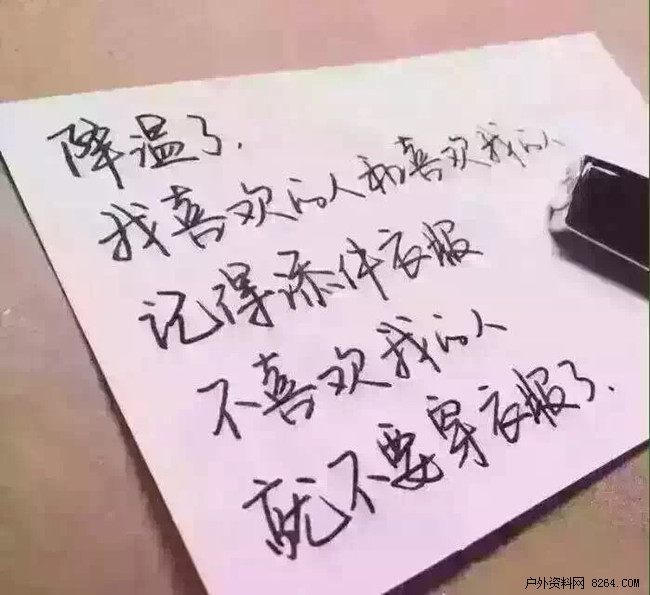 降温了.
我喜欢的人和喜欢我的人
记得添件衣服
不喜欢我的人
就不要穿衣服了.
户外资料网 8264.COM